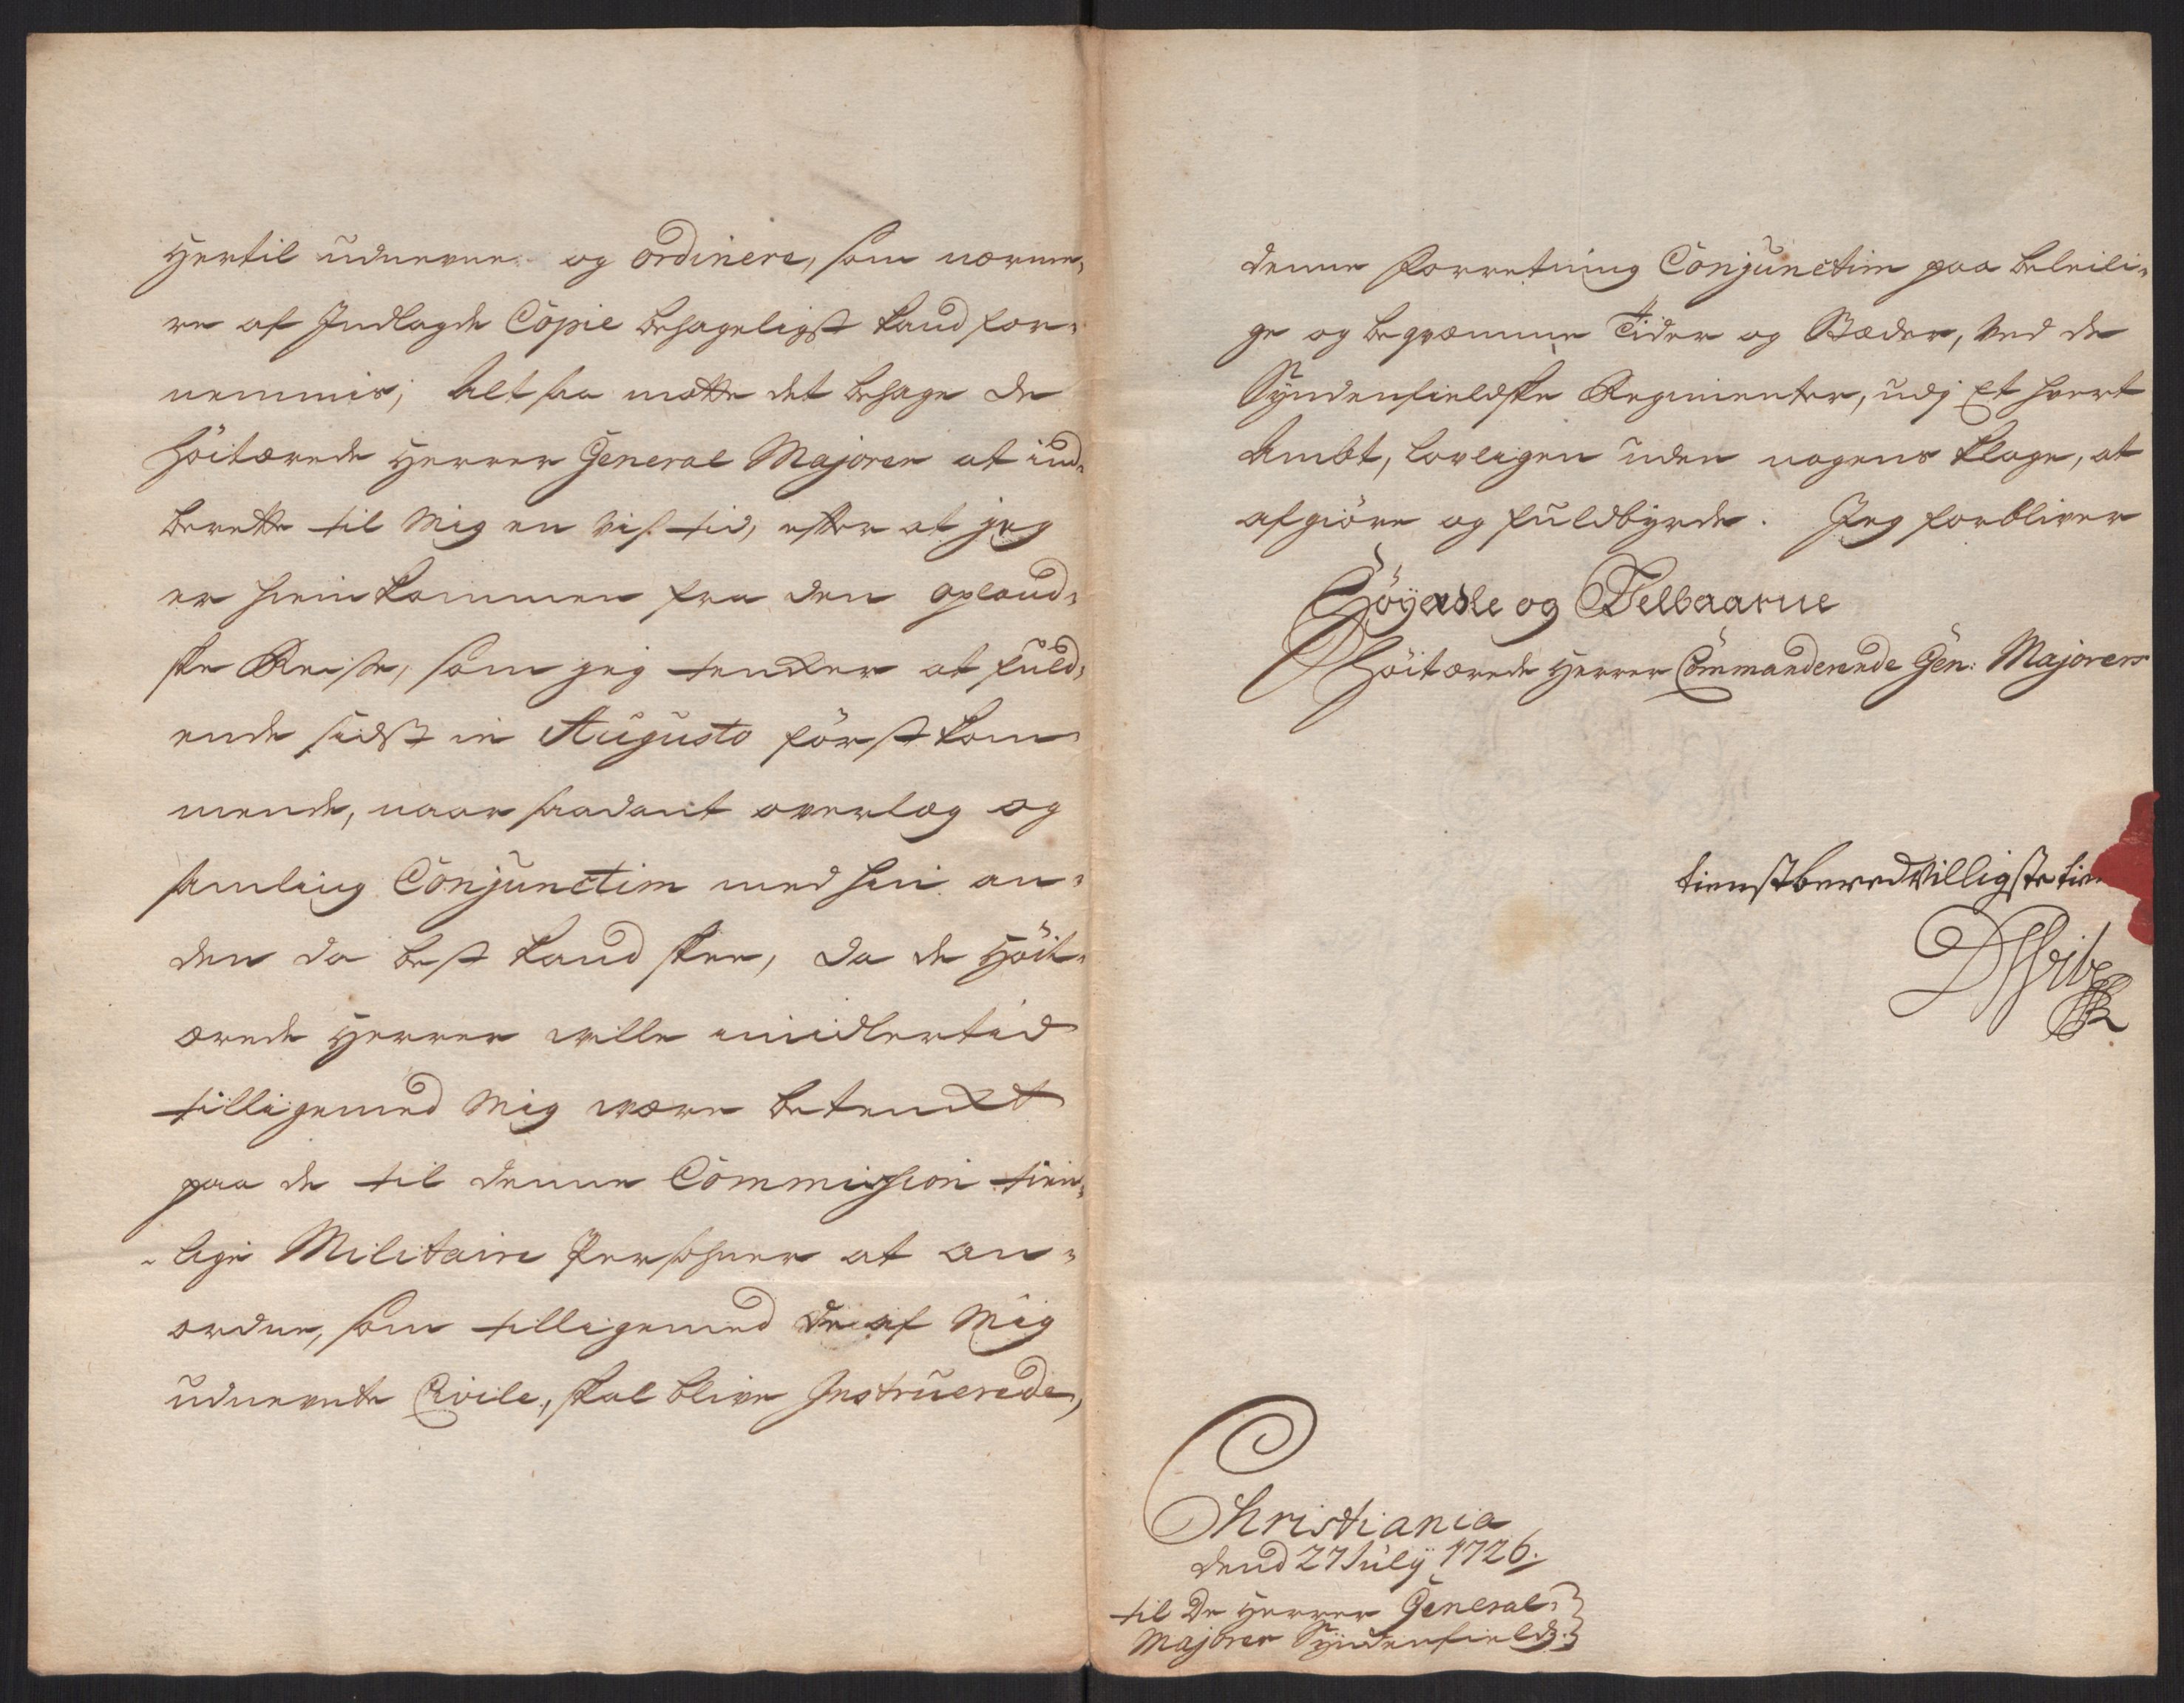 Hertil udnevne og ordinere, som nærme,
re af Indlagde Copie behageligst kand for,
nemmis; Alt saa motte det behage de
höitærede Herrer General Majorer at ind,
berette til Mig en vis tid, efter at jeg
er hiemkommen fra den opland,
ske Reise, som jeg tencker at fuld,
ende sidst in Augusto först kom,
mende, naar saadant overlæg og
samling Conjunctim med hin an,
den da best kand skee, da de Höit,
ærede Herrer wille imidlertid
tilligemed Mig være betenckt
paa de til denne Commission tien,
lige Militaire Persohner at an,
ordne, som tilligemed de af Mig
udnevnte Civile, skal blive Instruerede,
denne forretning Conjunctim paa beleili,
ge og beqvemme Tider og Stæder, ved de
Syndenfieldske Regimenter, udj Et hvert
Ambt, lovligen uden nogens klage, at
afgiöre og fuldbyrde. Jeg forbliver
Höyædle og Velbaarne
Höitærede Herrer Commanderende Gen: Majorers
tienstberedvilligste
Christiania
dend 27 July 1726.
til De Herrer General,
Majorer Syndenfields.